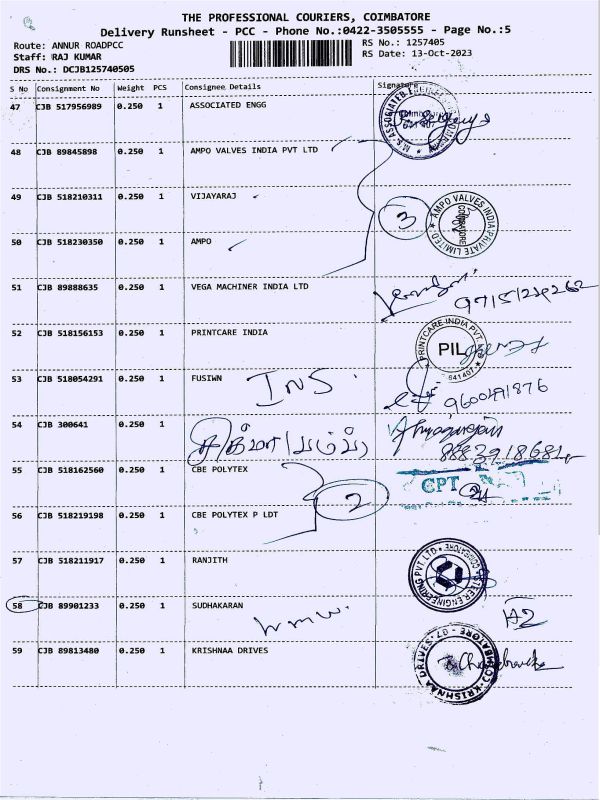 THE PROFESSIONAL COURIERS, COIMBATORE
Delivery Runsheet - PCC - Phone No.:0422-3505555 - Page No.:5
Route: ANNUR ROADPCC RS No.: 1257405
Staff: RAJ KUMAR RS Date: 13-Oct-2023
DRS No.: DCJB125740505
S No Consignment No Weight PCS Consignee Details Signature
47 CJB 517956989 0.250 1 ASSOCIATED ENGG
641 407
48 CJB 89845898 0.250 1 AMPO VALVES INDIA PVT LTD
49 CJB 518210311 0.250 1 VIJAYARAJ
3 AMPO VALVES INDIA PRIVATE LIMITED COIMBATORE
50 CJB 518230350 0.250 1 AMPO
51 CJB 89888635 0.250 1 VEGA MACHINER INDIA LTD
52 CJB 518156153 0.250 1 PRINTCARE INDIA
PRINTCARE INDIA PVT. PIL 641407
53 CJB 518054291 0.250 1 FUSIWN INS.
9600491876
54 CJB 300641 0.250 1
55 CJB 518162560 0.250 1 CBE POLYTEX
2 CPT
56 CJB 518219198 0.250 1 CBE POLYTEX P LDT
57 CJB 518211917 0.250 1 RANJITH
ENGINEERING PVT LTD COIMBATORE
58 CJB 89901233 0.250 1 SUDHAKARAN
59 CJB 89813480 0.250 1 KRISHNAA DRIVES
KRISHNAA DRIVES COIMBATORE - 07